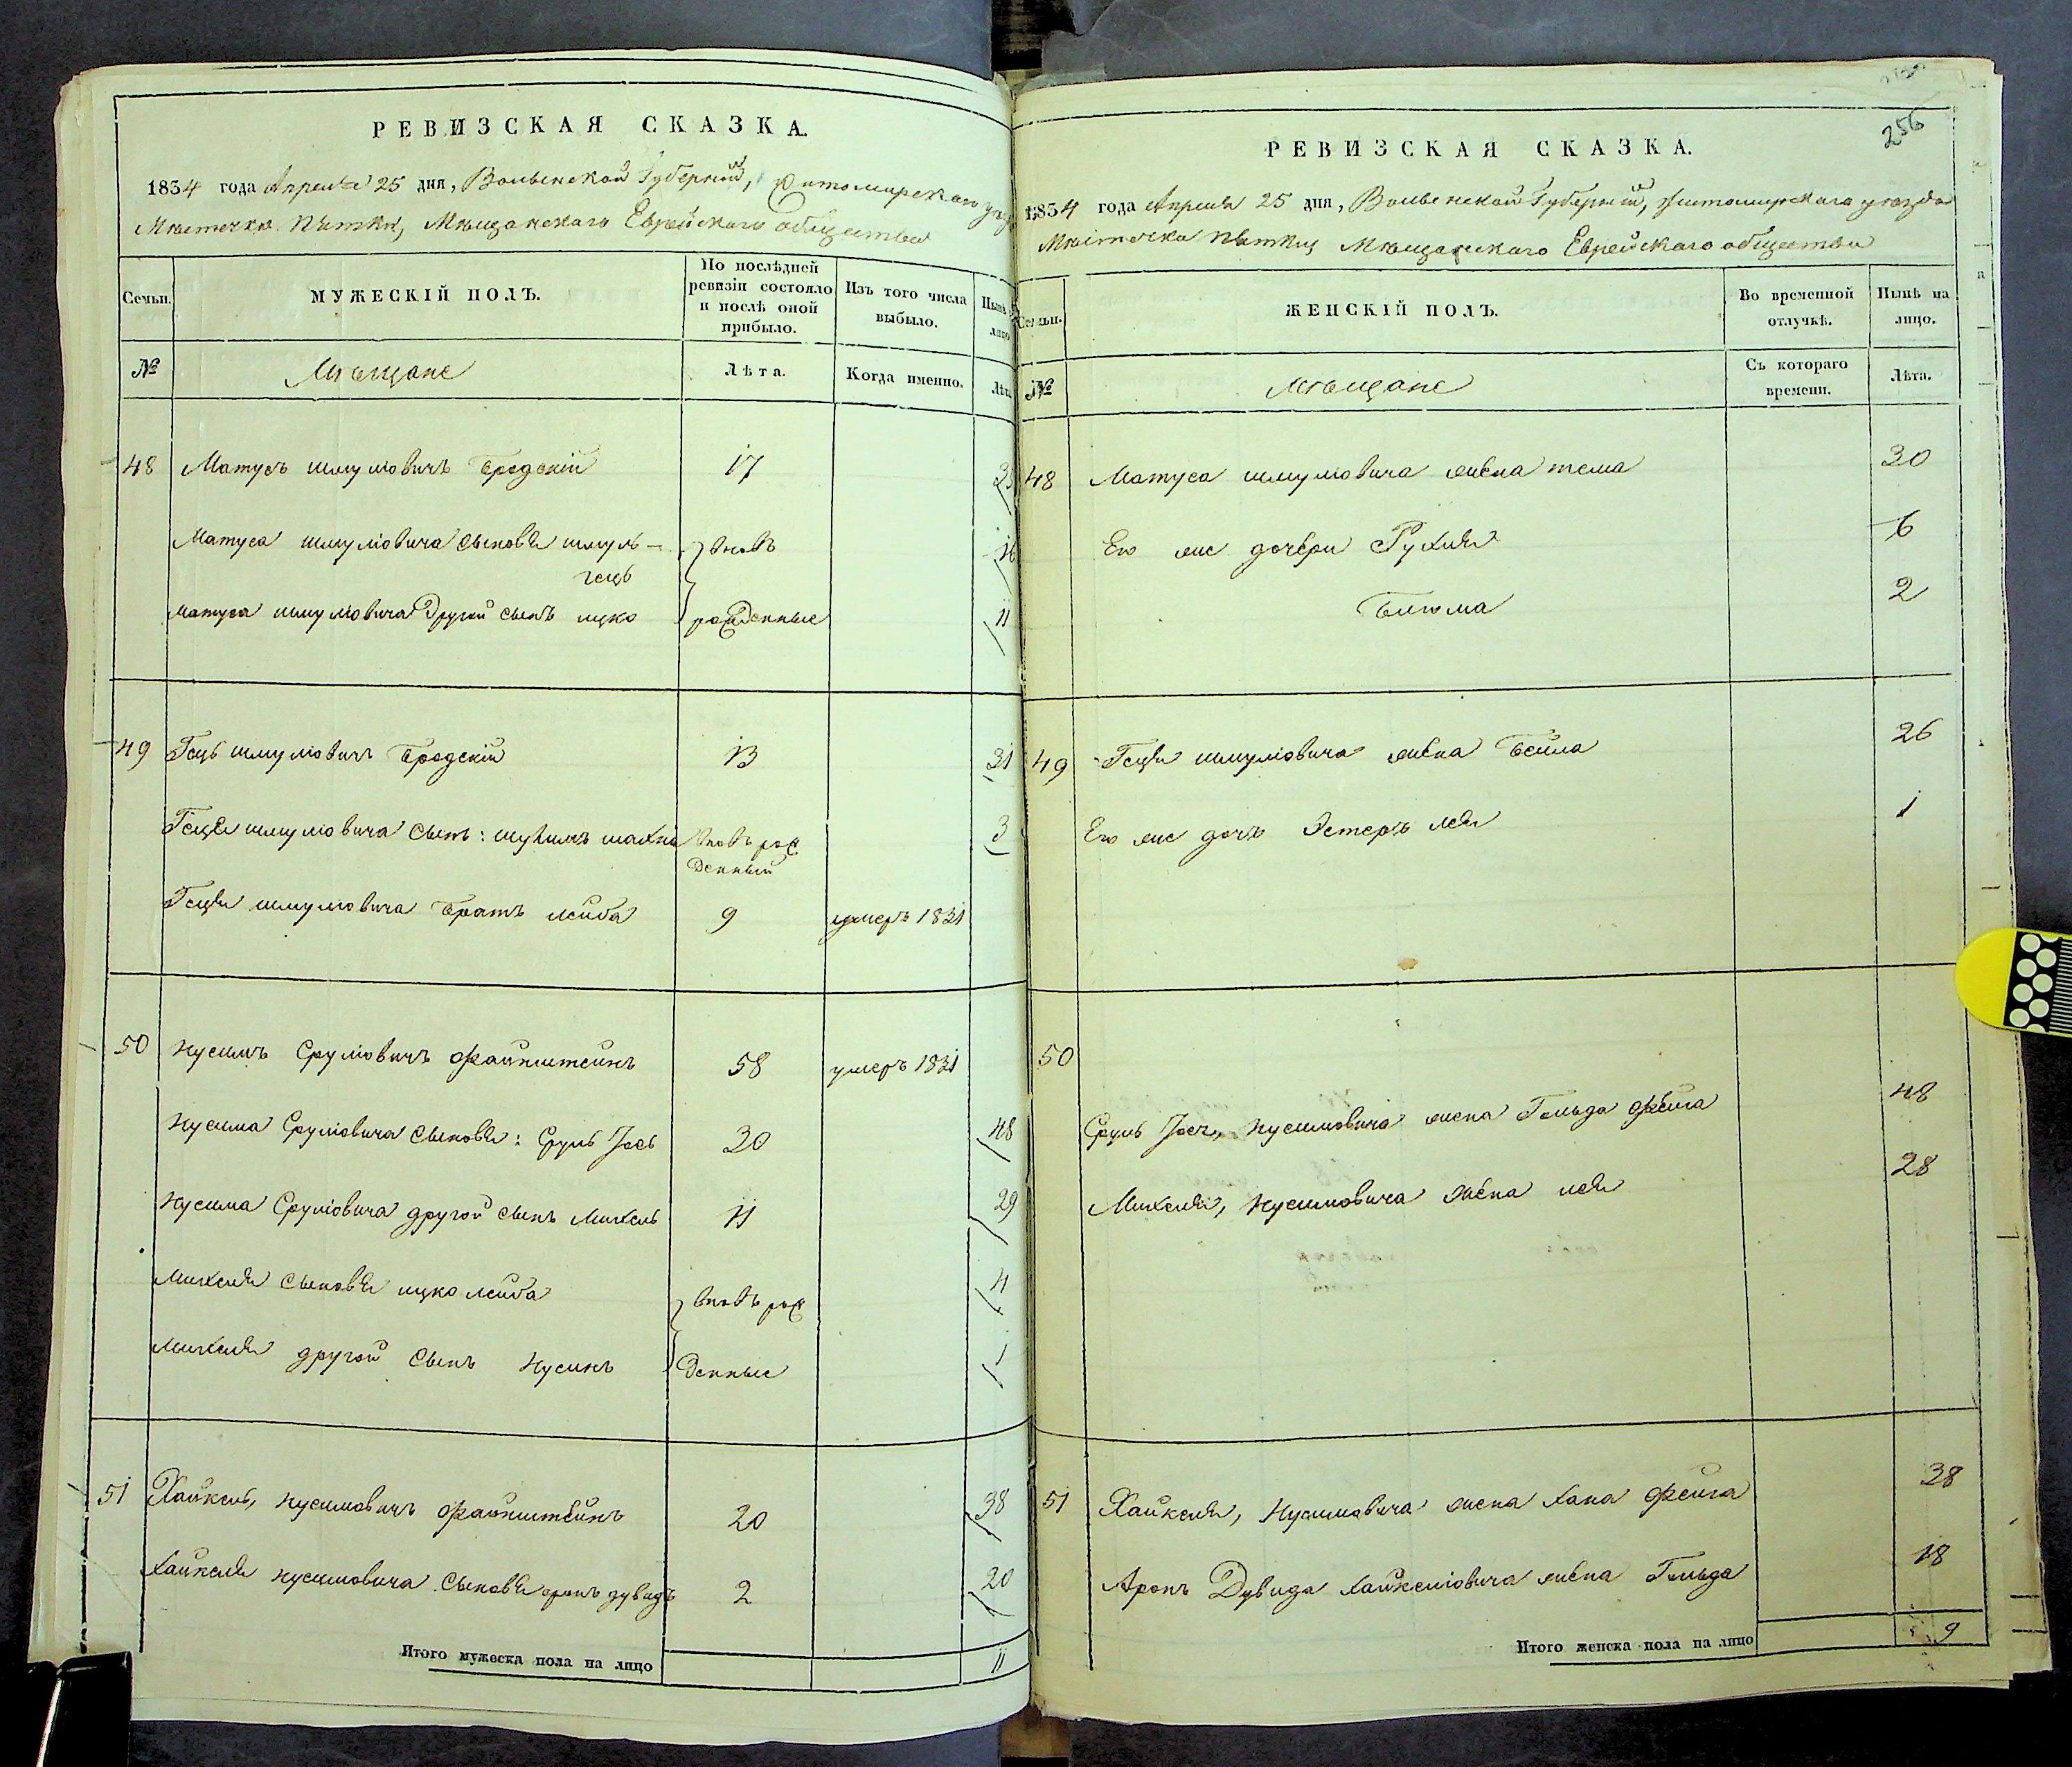 РЕВИЗСКАЯ СКАЗКА.
1834 года Апреля 25 дня, Волынской Губерніи, Житомирскаго
Мѣстечка Пятки, Мѣщанскаго Еврейскаго общества
Семьи.
МУЖЕСКІЙ ПОЛЪ.
По послѣдней ревизіи состояло и послѣ оной прибыло.
Изъ того числа выбыло.
Нынѣ на лицо
№
Мѣщане
Лѣта.
Когда именно.
Лѣта
48 Матусъ Шмуліовичъ Бродскій 17 35
Матуса Шмуліовича сыновья Шмуль- вновь 16
гецъ
Матуса Шмуліовича другой сынъ ицко рожденные 11
49 Гецъ Шмуліовичъ Бродскій 13 31
Геця Шмуліовича сынъ: шулимъ шахна вновь рож 3
денный
Геця Шмуліовича братъ лейба 9 умеръ 1831
50 Нусимъ Сруліовичъ Файнштейнъ 58 умеръ 1831
Нусима Сруліовича сыновья: Сруль Іось 30 48
Нусима Сруліовича другой сынъ Михель 11 29
Михеля сыновья ицко лейба вновь рож 4
Михеля другой сынъ Нусинъ денные 1
51 Хайкель, Нусимовичъ Файнштейнъ 20 38
Хайкеля Нусимовича сыновья аронъ дувидъ 2 20
Итого мужеска пола на лицо 11
256
РЕВИЗСКАЯ СКАЗКА.
1834 года Апреля 25 дня, Волынской Губерніи, Житомирскаго уѣзда
Мѣстечка Пятки Мѣщанскаго Еврейскаго общества
Семьи.
ЖЕНСКІЙ ПОЛЪ.
Во временной отлучкѣ.
Нынѣ на лицо.
№
Мѣщане
Съ котораго времени.
Лѣта.
48 Матуса Шмуліовича жена тема 30
Его же дочери Рухля 6
Блюма 2
49 Геця Шмуліовича жена Бейла 26
Его же дочь Эстеръ лея 1
50
Сруль Іося, Нусимовича жена Гольда Фейга 48
Михеля, Нусимовича жена лея 28
51 Хайкеля, Нусимовича жена хана Фейга 38
Аронъ Дувида Хайкеліовича жена Гольда 18
Итого женска пола на лицо 9